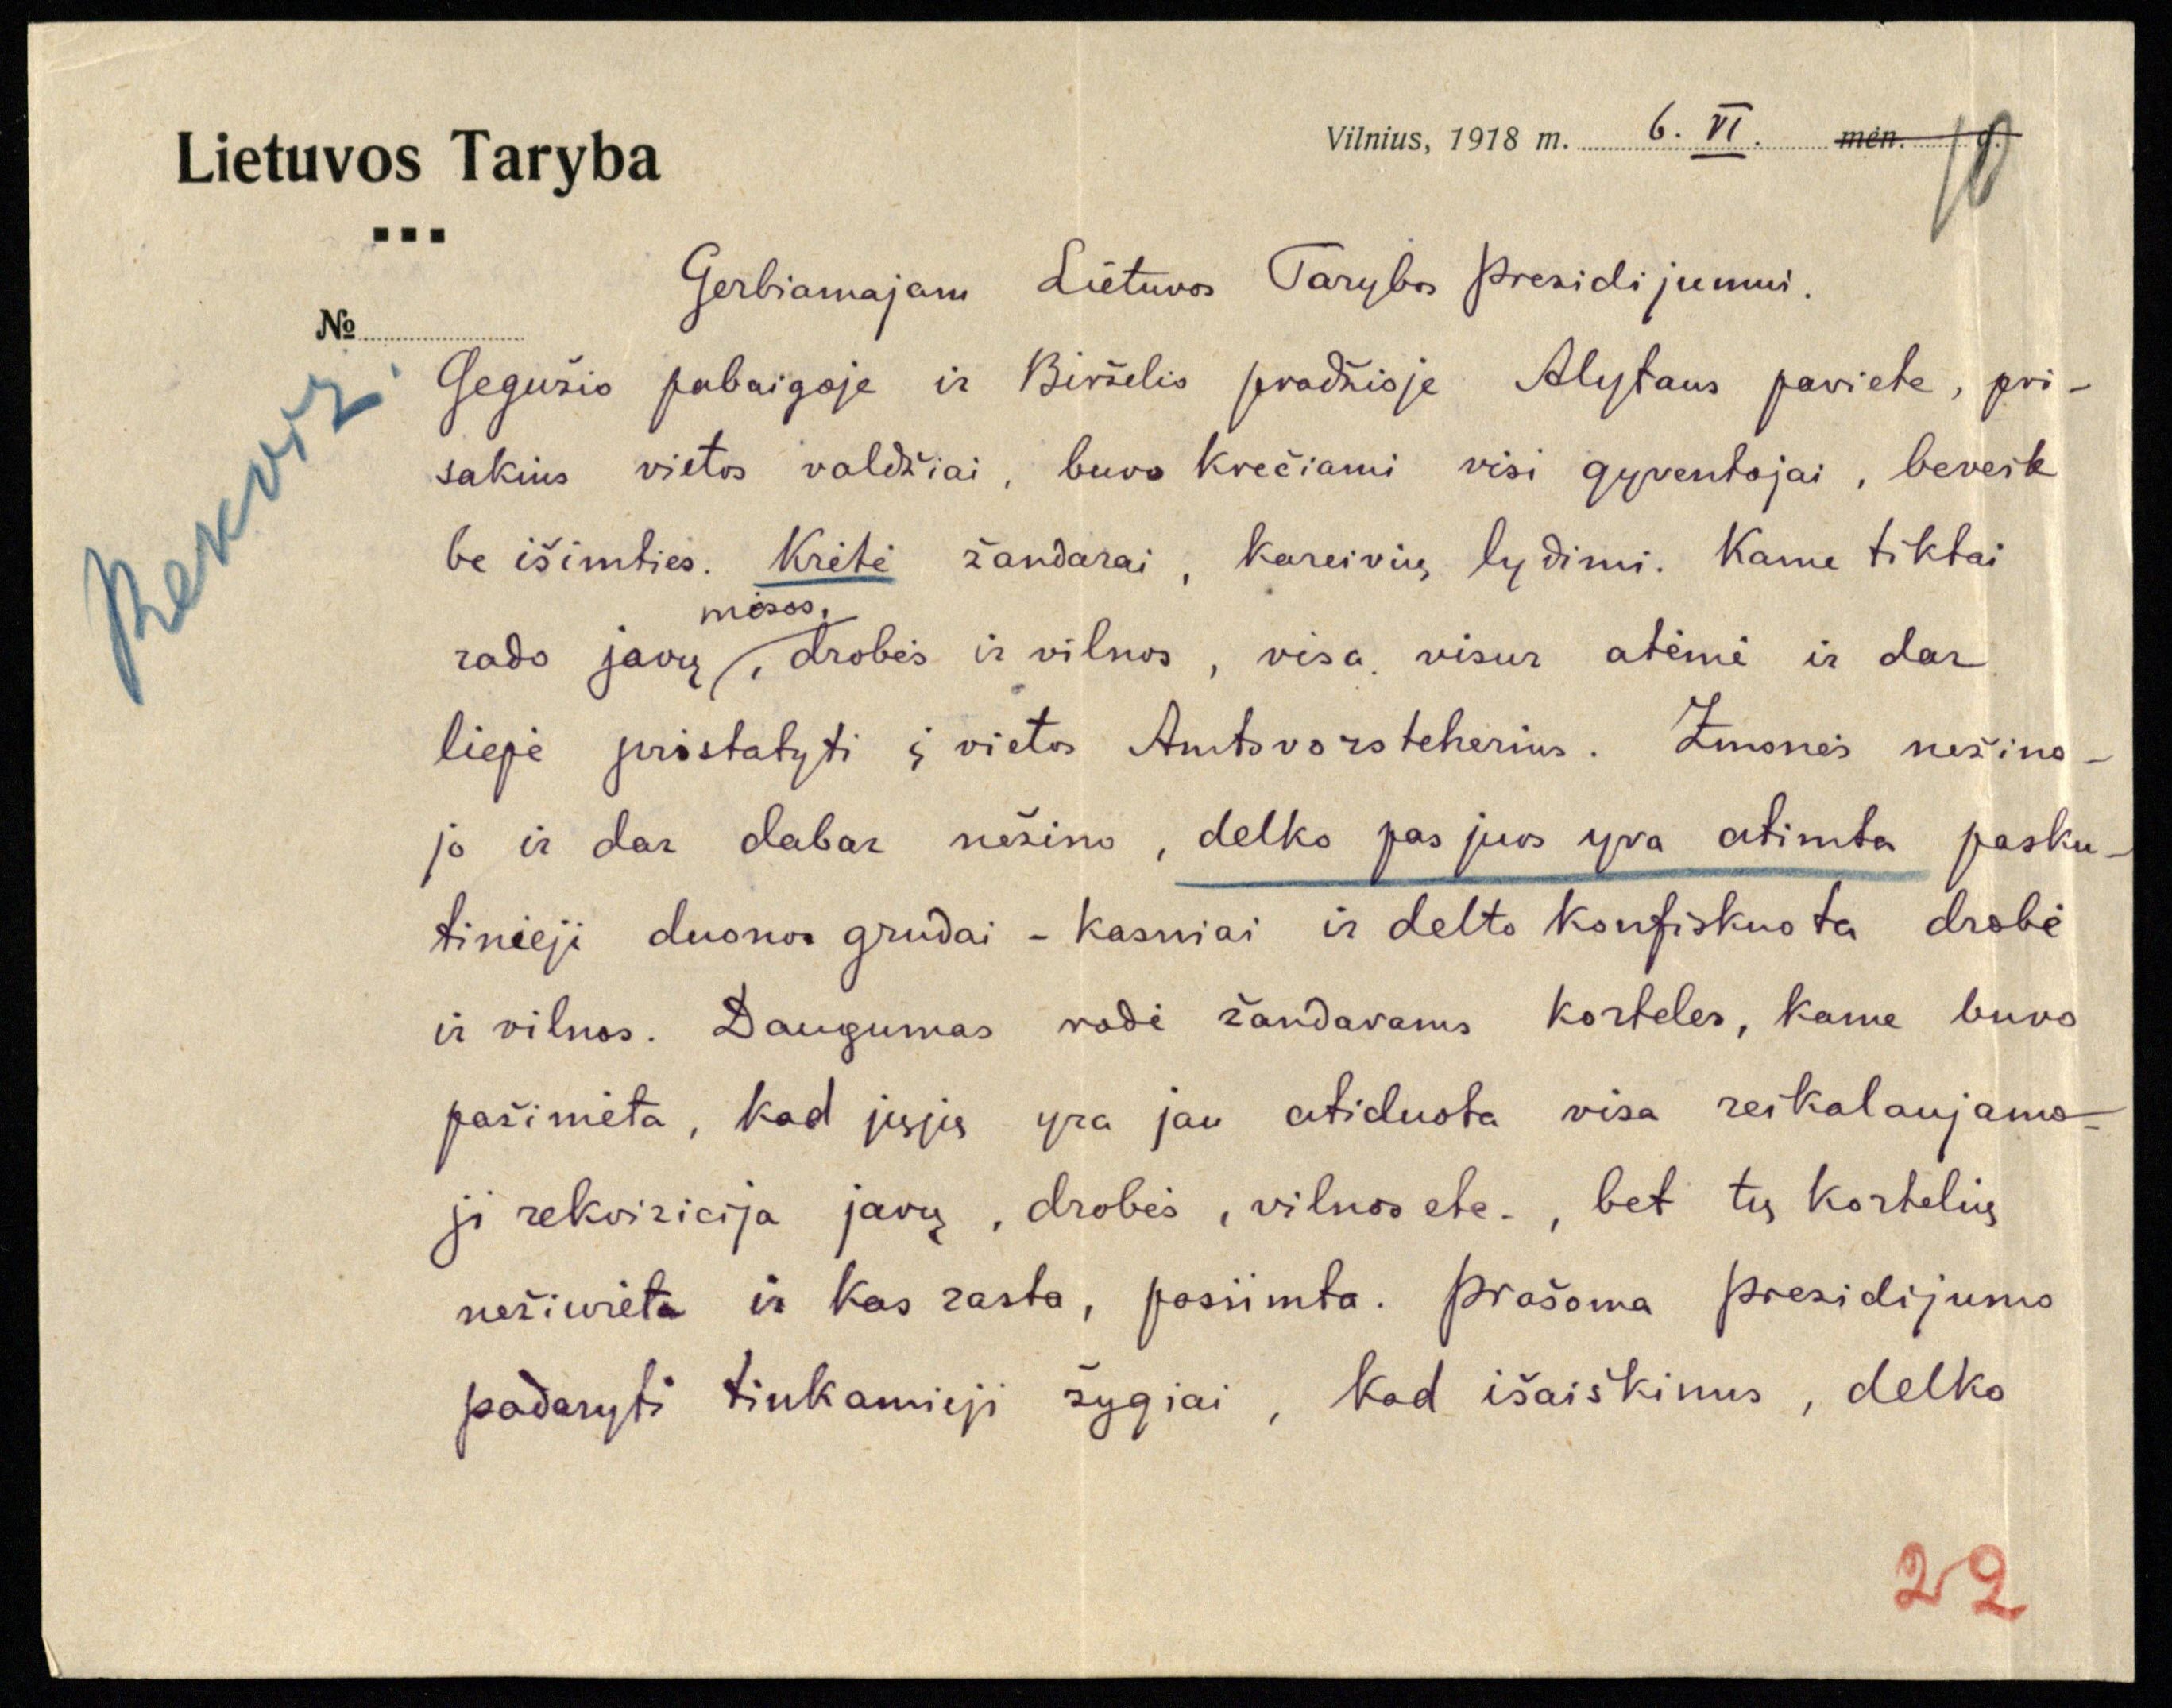 Lietuvos Taryba
Vilnius, 1918 m. 6. VI. mėn. d.
10
№
Rekviz.
Gerbiamajam Lietuvos Tarybos Prezidijumui.
Gegužio pabaigoje ir Birželio pradžioje Alytaus paviete, pri-
sakius vietos valdžiai, buvo krečiami visi gyventojai, beveik
be išimties. Krėtė žandarai, kareivių lydimi. Kame tiktai
mėsos,
rado javų, drobės ir vilnos, visa visur atėmė ir dar
liepė pristatyti į vietos Amtsvorsteherius. Žmonės nežino-
jo ir dar dabar nežino, delko pas juos yra atimta pasku-
tinieji duonos grudai - kasniai ir delto konfiskuota drobė
ir vilnos. Daugumas rodė žandarams korteles, kame buvo
pažimėta, kad jųjų yra jau atiduota visa reikalaujamo-
ji rekvizicija javų, drobės, vilnos etc., bet tų kortelių
nežiurėta ir kas rasta, pasiimta. Prašoma Prezidijumo
padaryti tinkamieji žygiai, kad išaiškinus, delko
22